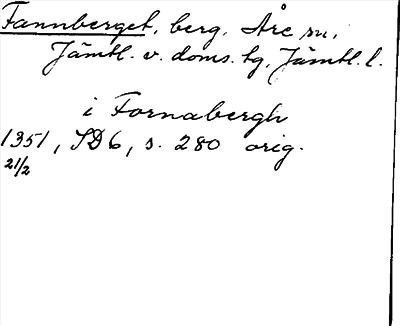 Fannberget, berg, Åre sn,
Jämtl. v. doms. tg, Jämtl. l.
i Fornabergh
1351, SD6, s. 280 orig.
21/2